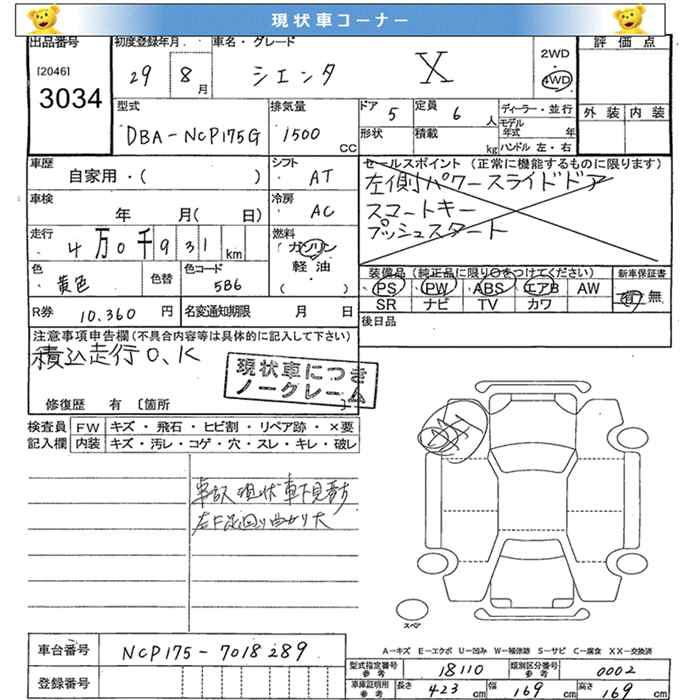 現状車コーナー
出品番号 初度登録年月 車名・グレード 2WD 評価点
[2046] 29 8月 シエンタ X 4WD
3034 外装 内装
型式 排気量 ドア 5 定員 6人 ディーラー・並行
DBA-NCP175G 1500cc 形状 積載 kg モデル年式 年
ハンドル 左・右
車歴 シフト セールスポイント (正常に機能するものに限ります)
自家用・( ) AT 左側パワースライドドア
車検 冷房 スマートキー
年 月( 日) AC プッシュスタート
走行 燃料
4万0千931km (ガソリン
色 色替 色コード 軽油・ 装備品 (純正品に限り○をつけてください) 新車保証書
黄色 5B6 ( ) PS PW ABS エアB AW 有・無
R券 10,360円 名変通知期限 月 日 SR ナビ TV カワ
注意事項申告欄(不具合内容等は具体的に記入して下さい) 後日品
積込走行O.K
現状車につき
ノークレーム
修復歴 有 〔箇所 〕
検査員 FW キズ・飛石・ヒビ割・リペア跡・×要
記入欄 内装 キズ・汚レ・コゲ・穴・スレ・キレ・破レ
事故現状車下見要す
左F足回り曲がり大
スペア
A－キズ E－エクボ U－凹み W－補修跡 S－サビ C－腐食 XX－交換済
車台番号 NCP175-7018289
型式指定番号参考 18110 類別区分番号参考 0002
登録番号 車庫証明用参考 長さ 423cm 幅 169cm 高さ 169cm